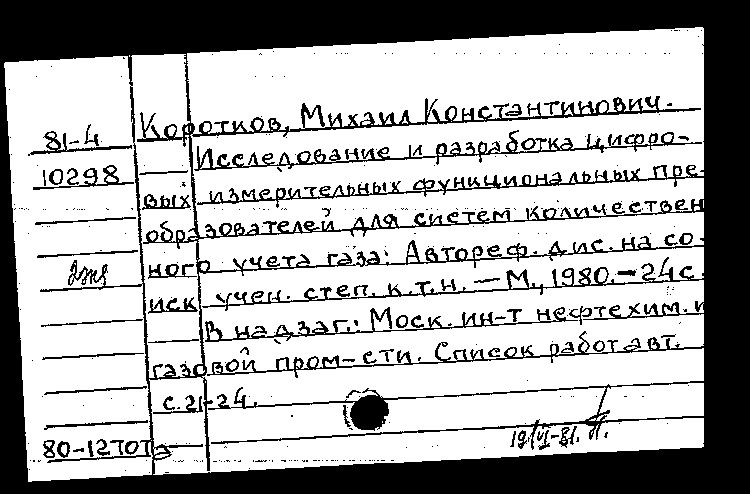 81-4 Коротков, Михаил Константинович.
10298 Исследование и разработка цифро-
вых измерительных функциональных пре-
образователей для систем количествен
2экз ного учета газа: Автореф. дис. на со-
иск учен. степ. к.т.н. — М., 1980. — 24 с.
В надзаг.: Моск. ин-т нефтехим. и
газовой пром-сти. Список работ авт.
с. 21-24.
19/VI-81.